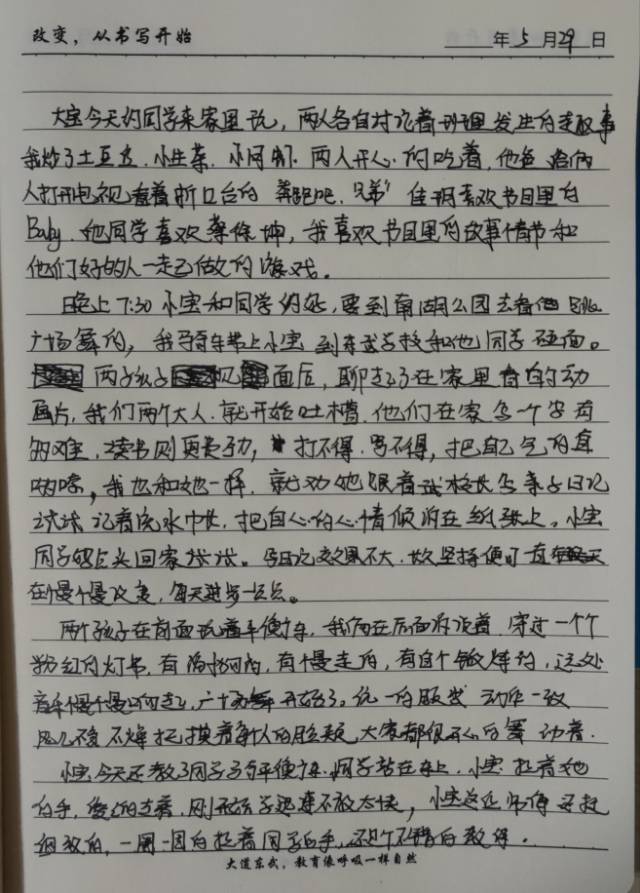 改变，从书写开始
年5月29日
大宝今天约同学来家里玩，两人各自讨论着班里发生的趣事
我炒了土豆丝、小生菜、两人开心的吃着，他爸给俩
人打开电视看着浙江台的奔跑吧，兄弟" 佳玥喜欢节目里的
Baby，她同学喜欢蔡徐坤，我喜欢节目里的故事情节和
他们好的人一起去做的游戏。
晚上7:30 小宝和同学约好，要到南湖公园去看他跳
广场舞的，我骑车带上小宝到东武学校和他同学碰面。
两个孩子见面后，聊起了在家里看的动
画片，我们两个大人，就开始吐槽，他们在家写一个字有
多难，读书则更费劲，打不得，骂不得，把自己气的直
哆嗦，我也和她一样，就劝她跟着武校长写亲子日记
试试 记着流水帐，把自己心的心情倾泻在纸张上。小宝
同学妈点头回家试试。写日记效果不大，故坚持便可一直
在慢慢改变，每天进步一点点。
两个孩子在前面玩着平衡车，我们在后面讨论着，穿过一个个
粉红的灯书，有的，有慢走的，有的，远处
音乐慢慢响起，广场舞开始了。统一的服装 动作一致
风儿不冷不燥抚摸着每人的脸颊，大家都很开心的舞动着。
小宝今天还教了同学的平衡车，同学站在车上，小宝拉着她
的手，慢慢的走着，刚开始学速度不敢太快，小宝这
细致的，一圈一圈的拉着同学的手，还是个不错的教练。
大道东武，教育像呼吸一样自然